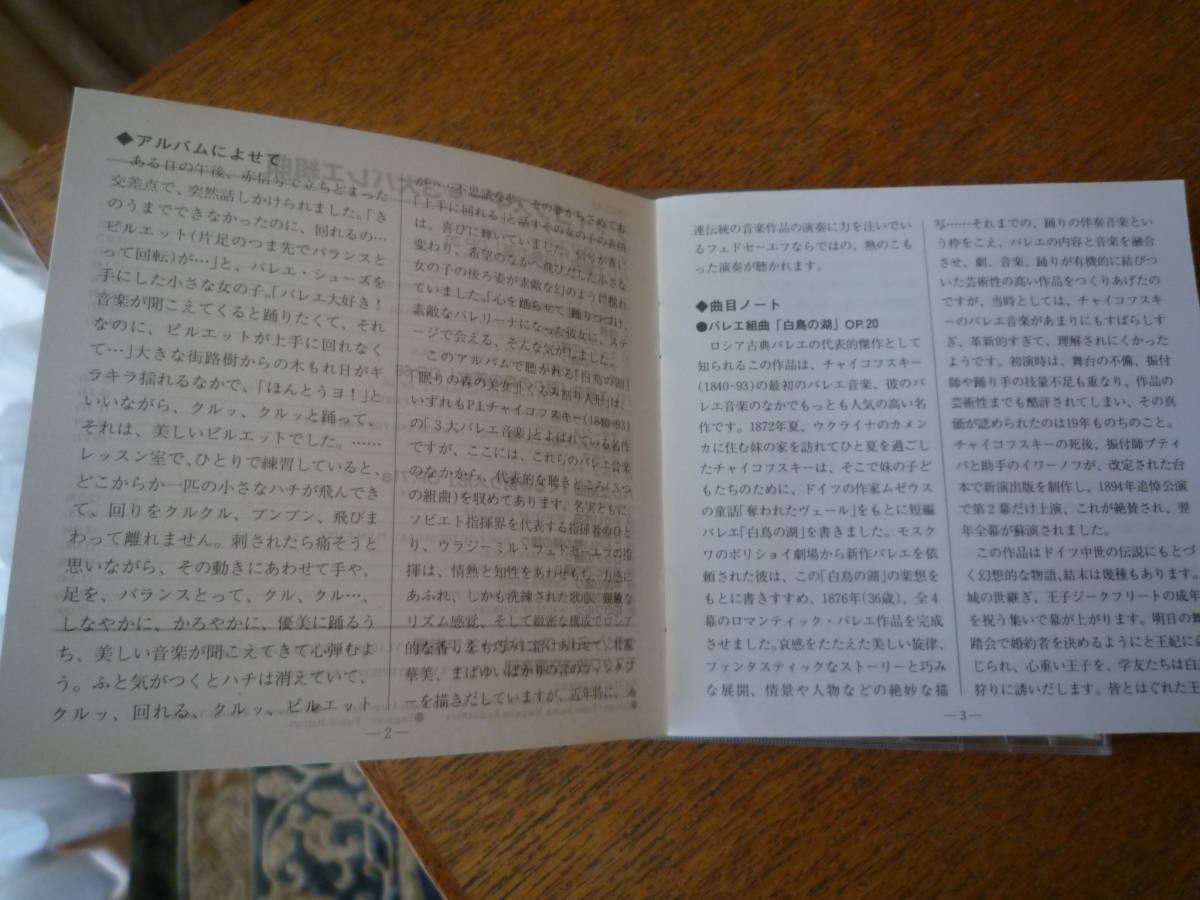 ◆アルバムによせて
ある日の午後、赤信号で立ちどまった
交差点で、突然話しかけられました。「き
のうまでできなかったのに、回れるの…
ピルエット(片足のつま先でバランスと
って回転)が…」と、バレエ・シューズを
手にした小さな女の子。「バレエ大好き!
音楽が聞こえてくると踊りたくて、それ
なのに、ピルエットが上手に回れなく
て…」大きな街路樹からの木もれ日がキ
ラキラ揺れるなかで、「ほんとうヨ!」と
いいながら、クルッ、クルッと踊って、
それは、美しいピルエットでした。……
レッスン室で、ひとりで練習していると、
どこからか一匹の小さなハチが飛んでき
て、回りをクルクル、ブンブン、飛びま
わって離れません。刺されたら痛そうと
思いながら、その動きにあわせて手や、
足を、バランスとって、クル、クル…、
しなやかに、かろやかに、優美に踊るう
ち、美しい音楽が聞こえてきて心弾むよ
う。ふと気がつくとハチは消えていて、
クルッ、回れる、クルッ、ピルエット
が……不思議な夢、その夢からさめても
「上手に回れる」と話すその女の子の表情
は、喜びに輝いていました。信号が青に
変わり、希望のなかへ飛びだした小さな
女の子の後ろ姿が素敵な幻のように揺れ
ていました。「心を踊らせて」踊りつづけ、
素敵なバレリーナになった彼女に、ステ
ージで会える、そんな気がしました…。
このアルバムで聴かれる「白鳥の湖」
「眠りの森の美女」「くるみ割り人形」は、
いずれもP.I.チャイコフスキー(1840-93)
の「3大バレエ音楽」とよばれている名作
ですが、ここには、これらのバレエ音楽
のなかから、代表的な聴きどころ(3つ
の組曲)を収めてあります。名実ともに、
ソビエト指揮界を代表する指揮者のひと
り、ウラジーミル・フェドセーエフの指
揮は、情熱と知性をあわせもち、力感に
あふれ、しかも洗練された歌心、鋭敏な
リズム感覚、そして緻密な構成でロシア
的な香りをも巧みに溶けあわせて、壮麗
華美、まばゆいばかりの音のファンタジ
ーを描きだしていますが、近年特に、ソ
—2—
連伝統の音楽作品の演奏に力を注いでい
るフェドセーエフならではの、熱のこも
った演奏が聴かれます。
◆曲目ノート
●バレエ組曲「白鳥の湖」OP.20
ロシア古典バレエの代表的傑作として
知られるこの作品は、チャイコフスキー
(1840-93)の最初のバレエ音楽、彼のバ
レエ音楽のなかでもっとも人気の高い名
作です。1872年夏、ウクライナのカメン
カに住む妹の家を訪れてひと夏を過ごし
たチャイコフスキーは、そこで妹の子ど
もたちのために、ドイツの作家ムゼウス
の童話「奪われたヴェール」をもとに短編
バレエ「白鳥の湖」を書きました。モスク
ワのボリショイ劇場から新作バレエを依
頼された彼は、この「白鳥の湖」の楽想を
もとに書きすすめ、1876年(36歳)、全4
幕のロマンティック・バレエ作品を完成
させました。哀感をたたえた美しい旋律、
ファンタスティックなストーリーと巧み
な展開、情景や人物などの絶妙な描
写……それまでの、踊りの伴奏音楽とい
う枠をこえ、バレエの内容と音楽を融合
させ、劇、音楽、踊りが有機的に結びつ
いた芸術性の高い作品をつくりあげたの
ですが、当時としては、チャイコフスキ
ーのバレエ音楽があまりにもすばらしす
ぎ、革新的すぎて、理解されにくかった
ようです。初演時は、舞台の不備、振付
師や踊り手の技量不足も重なり、作品の
芸術性までも酷評されてしまい、その真
価が認められたのは19年ものちのこと。
チャイコフスキーの死後、振付師プティ
パと助手のイワーノフが、改定された台
本で新演出版を制作し、1894年追悼公演
で第2幕だけ上演、これが絶賛され、翌
年全幕が蘇演されました。
この作品はドイツ中世の伝説にもとづ
く幻想的な物語、結末は幾種もあります。
城の世継ぎ、王子ジークフリートの成年
を祝う集いで幕が上がります。明日の舞
踏会で婚約者を決めるようにと王妃に命
じられ、心重い王子を、学友たちは白鳥
狩りに誘いだします。皆とはぐれた王
—3—